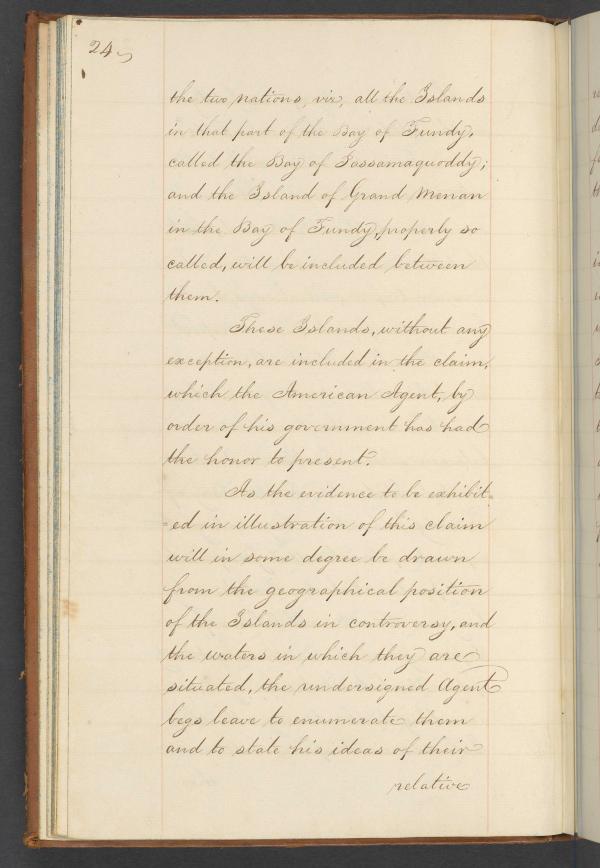 24
the two nations, viz, all the Islands
in that part of the Bay of Fundy,
called the Bay of Passamaquoddy;
and the Island of Grand Menan
in the Bay of Fundy, properly so
called, will be included between
them.
These Islands, without any
exception, are included in the claim,
which the American Agent, by
order of his government has had
the honor to present.
As the evidence to be exhibit=
=ed in illustration of this claim
will in some degree be drawn
from the geographical position
of the Islands in controversy, and
the waters in which they are
situated, the undersigned Agent
begs leave to enumerate them
and to state his ideas of their
relative